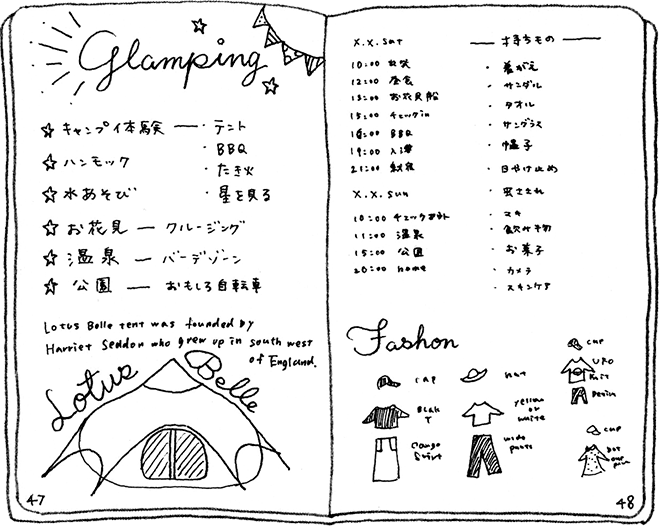 Glamping
☆ キャンプ体験 — ・テント
・BBQ
☆ ハンモック
・たき火
☆ 水あそび ・星を見る
☆ お花見 — クルージング
☆ 温泉 — バーデゾーン
☆ 公園 — おもしろ自転車
Lotus Belle tent was founded by
Harriet Seddon who grew up in south west
of England.
Lotus Belle
47
x.x. sat
10:00 出発
12:00 昼食
13:00 お花見船
15:00 チェックin
16:00 BBQ
19:00 入浴
21:00
x.x. sun
10:00 チェックアウト
11:00 温泉
15:00 公園
20:00 home
— 持ちもの —
・着がえ
・サンダル
・タオル
・サングラス
・帽子
・日やけ止め
・虫さされ
・飲み物
・お菓子
・カメラ
・スキンケア
Fashon
CAP
BLAK
T
Congo
Skirt
HAT
Yellow
or
white
wide
pants
CAP
Knit
Denim
CAP
DOT
one
48